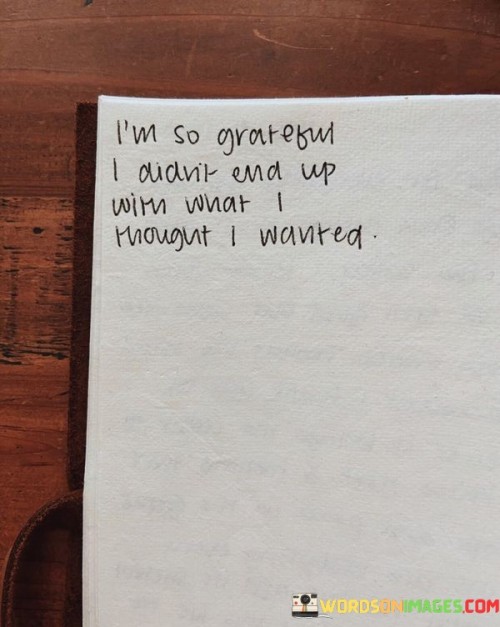 I'm so grateful
I didn't end up
with what I
thought I wanted.
WORDSONIMAGES.COM